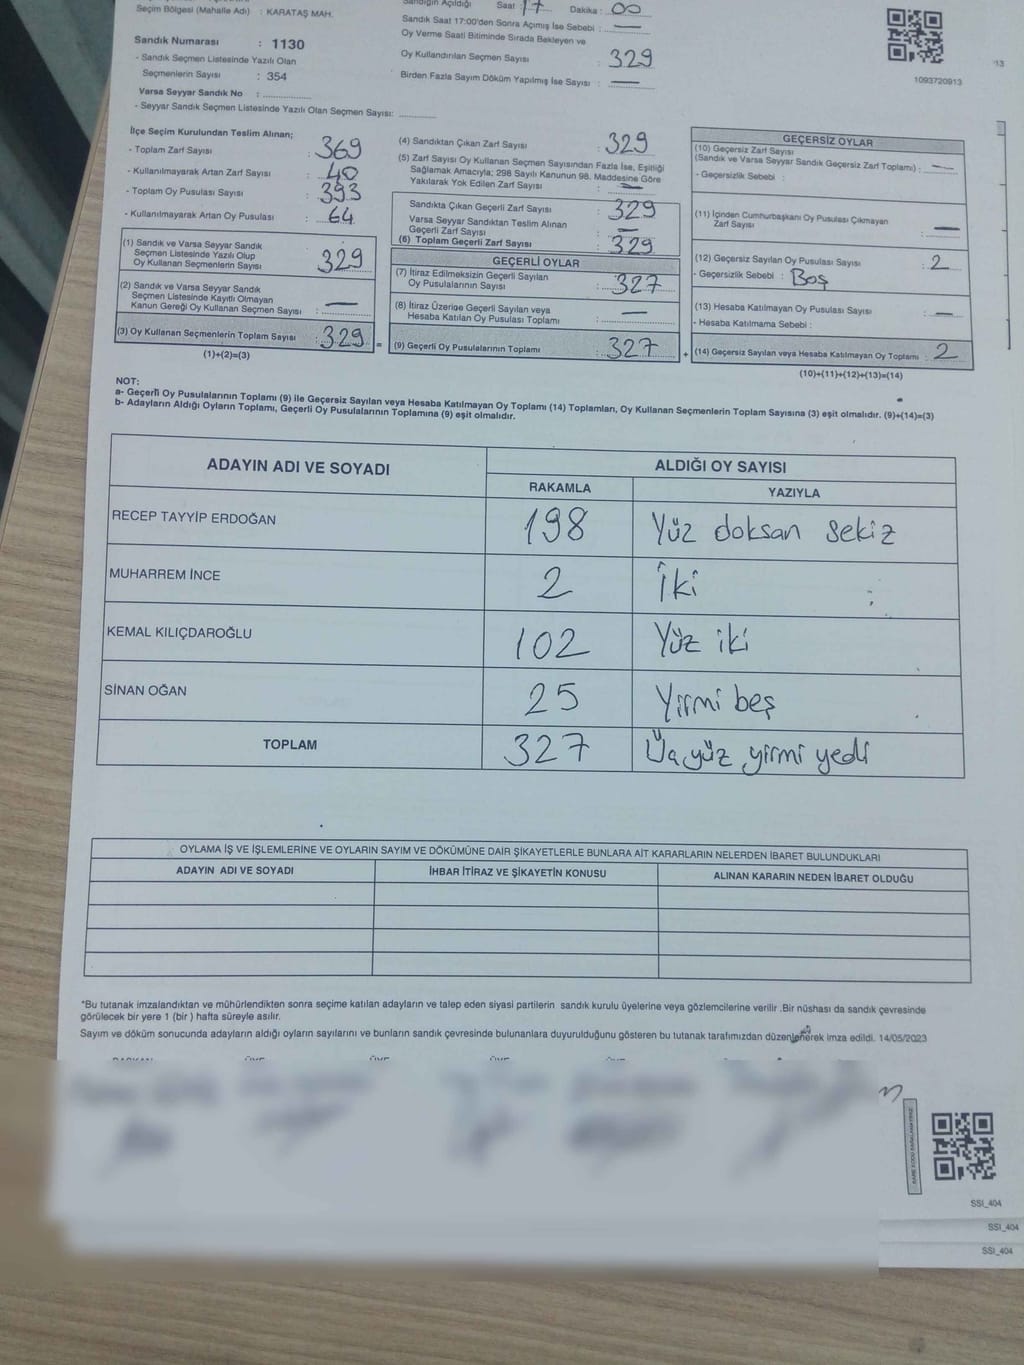 Sandığın Açıldığı Saat : 17 Dakika : 00
Seçim Bölgesi (Mahalle Adı) : KARATAŞ MAH.
Sandık Saat 17:00'den Sonra Açımış İse Sebebi : —
Oy Verme Saati Bitiminde Sırada Bekleyen ve
Oy Kullandırılan Seçmen Sayısı : 329
Birden Fazla Sayım Döküm Yapılmış İse Sayısı : —
1093720913
13
Sandık Numarası : 1130
- Sandık Seçmen Listesinde Yazılı Olan
Seçmenlerin Sayısı : 354
Varsa Seyyar Sandık No :
- Seyyar Sandık Seçmen Listesinde Yazılı Olan Seçmen Sayısı:
İlçe Seçim Kurulundan Teslim Alınan;
- Toplam Zarf Sayısı : 369
- Kullanılmayarak Artan Zarf Sayısı : 40
- Toplam Oy Pusulası Sayısı : 393
- Kullanılmayarak Artan Oy Pusulası : 64
(1) Sandık ve Varsa Seyyar Sandık
Seçmen Listesinde Yazılı Olup
Oy Kullanan Seçmenlerin Sayısı : 329
(2) Sandık ve Varsa Seyyar Sandık
Seçmen Listesinde Kayıtlı Olmayan
Kanun Gereği Oy Kullanan Seçmen Sayısı : —
(3) Oy Kullanan Seçmenlerin Toplam Sayısı : 329 =
(1)+(2)=(3)
(4) Sandıktan Çıkan Zarf Sayısı : 329
(5) Zarf Sayısı Oy Kullanan Seçmen Sayısından Fazla İse, Eşitliği
Sağlamak Amacıyla; 298 Sayılı Kanunun 98. Maddesine Göre
Yakılarak Yok Edilen Zarf Sayısı : —
Sandıkta Çıkan Geçerli Zarf Sayısı : 329
Varsa Seyyar Sandıktan Teslim Alınan
Geçerli Zarf Sayısı : —
(6) Toplam Geçerli Zarf Sayısı : 329
GEÇERLİ OYLAR
(7) İtiraz Edilmeksizin Geçerli Sayılan
Oy Pusulalarının Sayısı : 327
(8) İtiraz Üzerine Geçerli Sayılan veya
Hesaba Katılan Oy Pusulası Toplamı : —
(9) Geçerli Oy Pusulalarının Toplamı : 327 +
GEÇERSİZ OYLAR
(10) Geçersiz Zarf Sayısı
(Sandık ve Varsa Seyyar Sandık Geçersiz Zarf Toplamı) : —
- Geçersizlik Sebebi :
(11) İçinden Cumhurbaşkanı Oy Pusulası Çıkmayan
Zarf Sayısı : —
(12) Geçersiz Sayılan Oy Pusulası Sayısı : 2
- Geçersizlik Sebebi : Boş
(13) Hesaba Katılmayan Oy Pusulası Sayısı : —
- Hesaba Katılmama Sebebi :
(14) Geçersiz Sayılan veya Hesaba Katılmayan Oy Toplamı : 2
(10)+(11)+(12)+(13)=(14)
NOT:
a- Geçerli Oy Pusulalarının Toplamı (9) ile Geçersiz Sayılan veya Hesaba Katılmayan Oy Toplamı (14) Toplamları, Oy Kullanan Seçmenlerin Toplam Sayısına (3) eşit olmalıdır. (9)+(14)=(3)
b- Adayların Aldığı Oyların Toplamı, Geçerli Oy Pusulalarının Toplamına (9) eşit olmalıdır.
ADAYIN ADI VE SOYADI ALDIĞI OY SAYISI
RAKAMLA YAZIYLA
RECEP TAYYİP ERDOĞAN 198 Yüz doksan sekiz
MUHARREM İNCE 2 İki
KEMAL KILIÇDAROĞLU 102 Yüz iki
SİNAN OĞAN 25 Yirmi beş
TOPLAM 327 Üçyüz yirmi yedi
OYLAMA İŞ VE İŞLEMLERİNE VE OYLARIN SAYIM VE DÖKÜMÜNE DAİR ŞİKAYETLERLE BUNLARA AİT KARARLARIN NELERDEN İBARET BULUNDUKLARI
ADAYIN ADI VE SOYADI İHBAR İTİRAZ VE ŞİKAYETİN KONUSU ALINAN KARARIN NEDEN İBARET OLDUĞU
*Bu tutanak imzalandıktan ve mühürlendikten sonra seçime katılan adayların ve talep eden siyasi partilerin sandık kurulu üyelerine veya gözlemcilerine verilir .Bir nüshası da sandık çevresinde
görülecek bir yere 1 (bir ) hafta süreyle asılır.
Sayım ve döküm sonucunda adayların aldığı oyların sayılarını ve bunların sandık çevresinde bulunanlara duyurulduğunu gösteren bu tutanak tarafımızdan düzenlenerek imza edildi. 14/05/2023
SSI_404
SSI_404
SSI_404